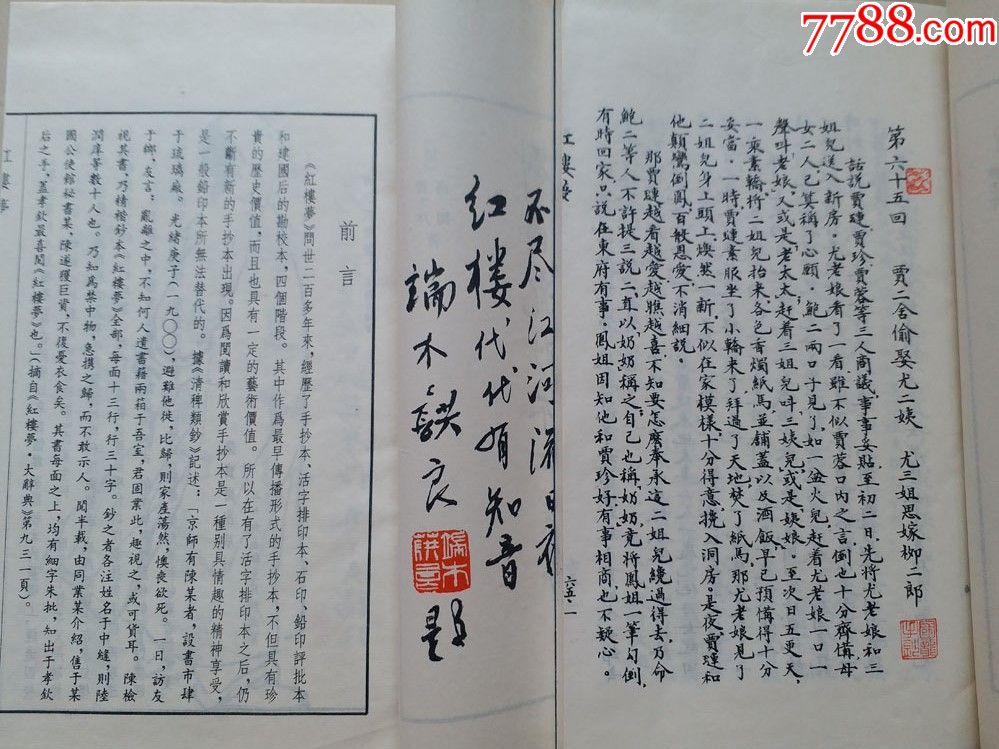 7788.com
红樓夢
第六十五回 賈二舍偷娶尤二姨 尤三姐思嫁柳二郎
話説賈璉賈珍賈蓉等三人商議事事妥貼至初二日先將尤老娘和三
姐兒送入新房尤老娘看了一看雖不似賈蓉口内之言倒也十分齊備母
女二人已算稱了心願鮑二兩口子見了如一盆火兒赶着尤老娘一口一
聲叫老娘又或是老太太赶着三姐兒叫三姨兒或是姨娘至次日五更天
一乘素轎將二姐兒抬來各色香燭紙馬並舖蓋以及酒飯早已預備得十分
妥當一時賈璉素服坐了小轎來了拜過了天地焚了紙馬那尤老娘見了
二姐兒身上頭上焕然一新不似在家模樣十分得意攙入洞房是夜賈璉和
他顛鸞倒鳳百般恩愛不消細説
那賈璉越看越愛越瞧越喜不知要怎麽奉承這二姐兒纔過得去乃命
鮑二等人不許提三説二直以奶奶稱之自己也稱奶奶竟將鳳姐一筆勾倒
有時回家只説在東府有事鳳姐因知他和賈珍好有事相商也不疑心
红樓夢
六五·一
不尽江河流日夜
红楼代代有知音
端木蕻良 题
端木
蕻良
前言
《紅樓夢》問世二百多年來，經歷了手抄本、活字排印本、石印、鉛印評批本
和建國后的勘校本，四個階段。其中作爲最早傳播形式的手抄本，不但具有珍
貴的歷史價值，而且也具有一定的藝術價值。所以在有了活字排印本之后，仍
不斷有新的手抄本出現。因爲閱讀和欣賞手抄本是一種别具情趣的精神享受，
是一般鉛印本所無法替代的。據《清稗類鈔》記述：「京師有陳某者，設書市肆
于琉璃廠。光緒庚子（一九〇〇），避難他徙，比歸，則家產蕩然，懊喪欲死。一日，訪友
于鄉，友言：亂離之中，不知何人遺書籍兩箱于吾室，君固業此，趣視之，或可貨耳。陳檢
視其書，乃精楷鈔本《紅樓夢》全部，每面十三行，行三十字。鈔之者各注姓名于中縫，則陸
潤庠等數十人也。乃知爲禁中物，急携之歸，而不敢示人。閱半載，由同業某介紹，售于某
國公使館秘書某，陳遂獲巨資，不復憂衣食矣。其書每面之上，均有細字朱批，知出于孝欽
后之手，蓋孝欽最喜閱《紅樓夢》也。」（摘自《紅樓夢·大辭典》第九三一頁）。